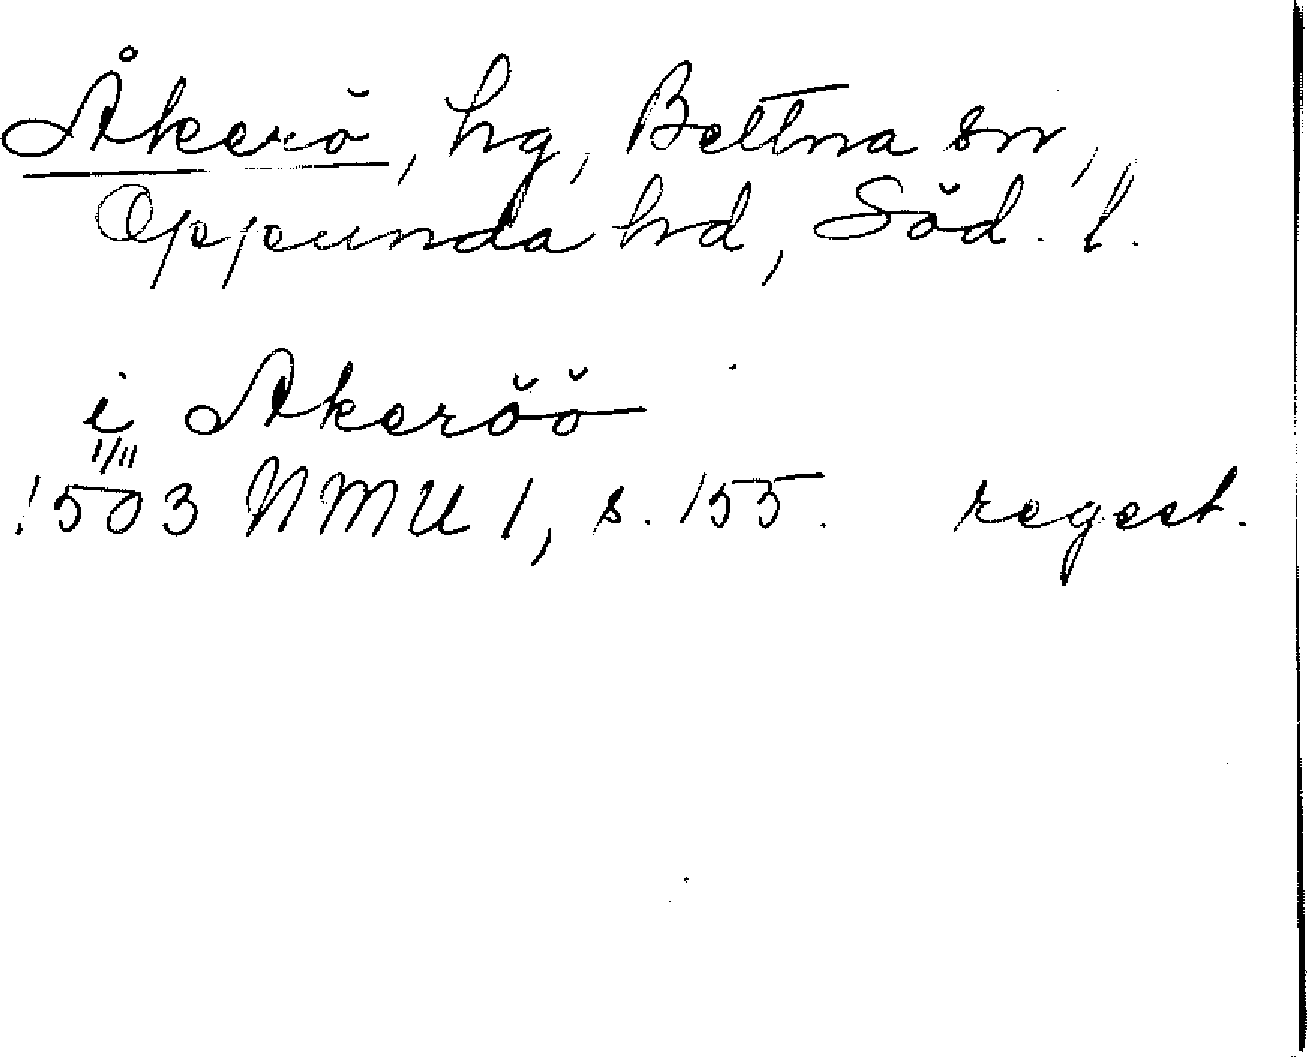 Åkerö, hg, Bettna sn,
Oppunda hd, Söd. l.
i Akeröö
1/11
1503 NMU 1, s. 155. regest.